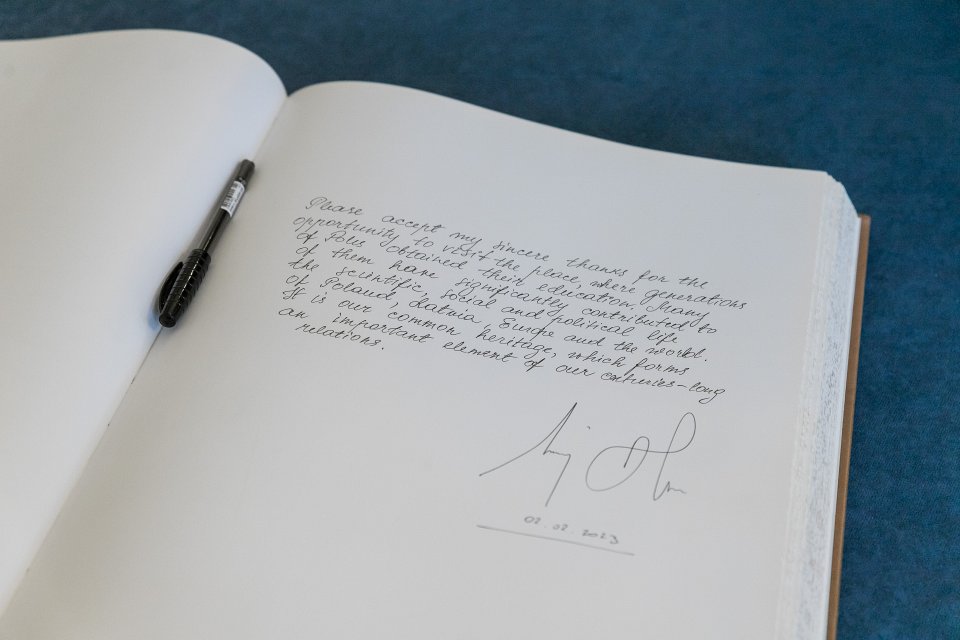 Please accept my sincere thanks for the
opportunity to visit the place, where generations
of Poles obtained their education. Many
of them have significantly contributed to
the scientific, social and political life
of Poland, Latvia, Europe and the world.
It is our common heritage, which forms
an important element of our centuries-long
relations.
02.02.2023